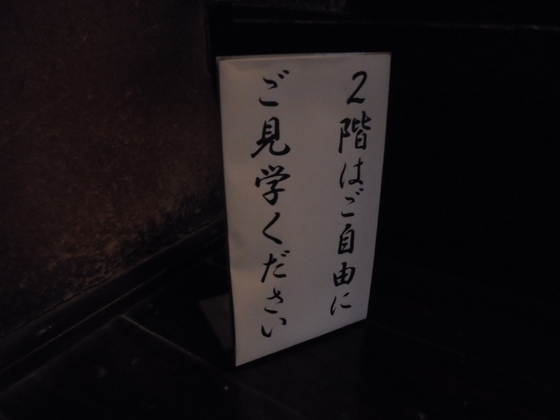 2階はご自由に
ご見学ください